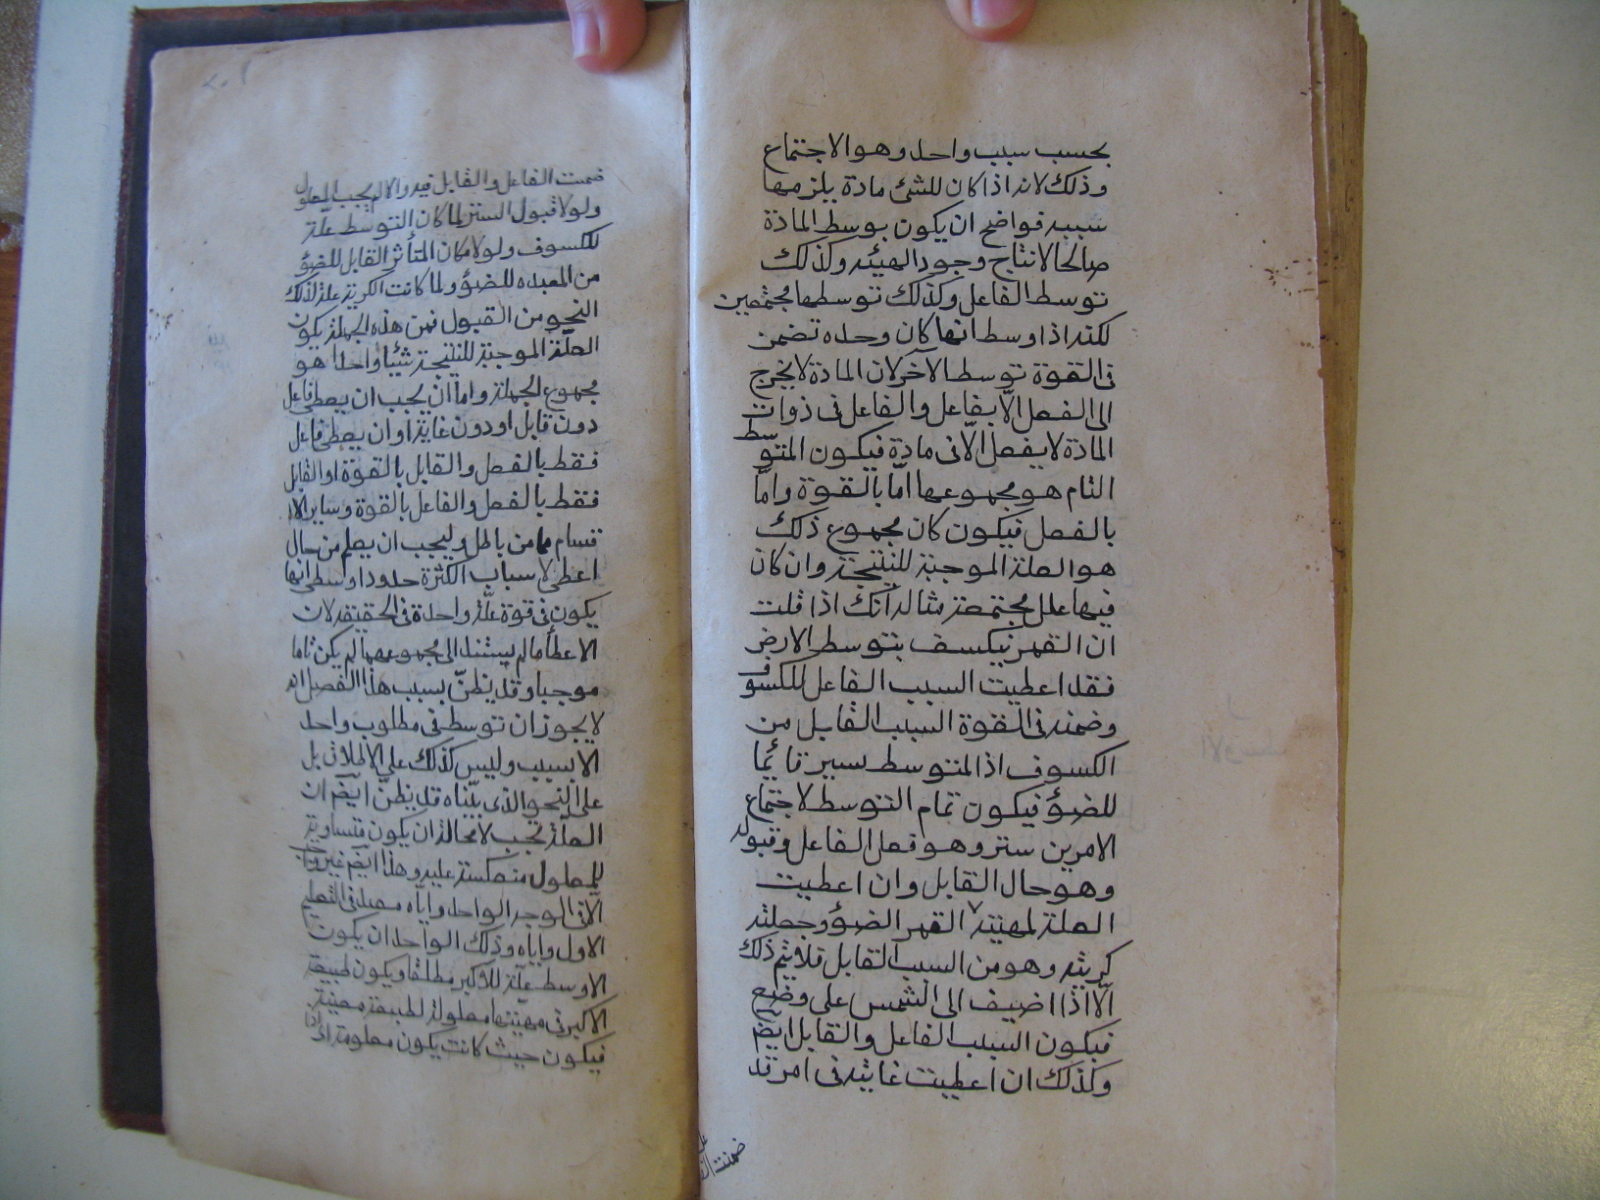 بحسب سبب واحد وهو الاجتماع
وذلك لانه اذا كان للشئ مادة يلزمها
سببه فواضح ان يكون بوسط المادة
صالحا لانتاج وجود الهيئه وكذلك
توسط الفاعل وكذلك توسطها مجتمعين
لكنه اذا وسط انها كان وحده تضمن
فى القوة توسط الآخر لان المادة لا يخرج
الى الفعل الّا بفاعل والفاعل فى ذوات
المادة لا يفعل الّا فى مادة فيكون المتوسط
التام هو مجموعها امّا بالقوة وامّا
بالفعل فيكون كان مجموع ذلك
هو العلة الموجبة للنتيجة وان كان
فيها علل مجتمعة مثاله انّك اذا قلت
ان القمر ينكسف بتوسط الارض
فقد اعطيت السبب الفاعل للكسوف
وضمنه فى القوة السبب القابل من
الكسوف اذ المتوسط سير قائما
للضؤ فيكون تمام التوسط لاجتماع
الامرين ستر وهو فعل الفاعل وقبوله
وهو حال القابل وان اعطيت
العلة لمهيئة القمر الضؤ وجعلته
كريته وهو من السبب القابل فلا يتم ذلك
الّا اذا اضيف الى الشمس على وضع
فيكون السبب الفاعل والقابل ايضً
وكذلك ان اعطيت غايته فى امر قد
ضمنت
ضمنت الفاعل والقابل فيه والا لم يجب المعلول
ولولا قبول الستر لما كان التوسط علّة
للكسوف ولولا مكان المتأثر القابل للضؤ
من المعبده للضؤ ولما كانت الكرية علة لذلك
النحو من القبول فمن هذه الجملة يكون
العلّة الموجبة للنتيجة شيئا واحدا هو
مجموع الجملة واما ان يجب ان يعطى فاعل
دون قابل او دون غاية او ان يعطى فاعل
فقط بالفعل والقابل بالقوة او القابل
فقط بالفعل والفاعل بالقوة وساير الا
قسام مما من باطل وليجب ان يعلم من حال
اعطى لاسباب الكثرة حدودا وسطى انها
يكون فى قوة علّة واحدة فى الحقيقه لان
الاعطأ ما لم يستند الى مجموعهما لم يكن تاما
موجبا وقد يظنّ بسبب هذا الفصل انه
لا يجوز ان توسط فى مطلوب واحد
الا سبب وليس كذلك على الاطلاق بل
على النحو الذى بيّناه قد يظنّ ايضً ان
العلة يجب لا محالة ان يكون متساوية
للمعلول منعكسة عليه وهذا ايضً غير واجب
الّا فى الوجه الواحد واياه معد فى التعليم
الاول واياه وذلك الواحد ان يكون
الاوسط علّة للاكبر مطلقا ويكون طبيعة
الاكبر فى مهيتها معلولة لطبيعة معينة
فيكون حيث كانت يكون معلومة اذ